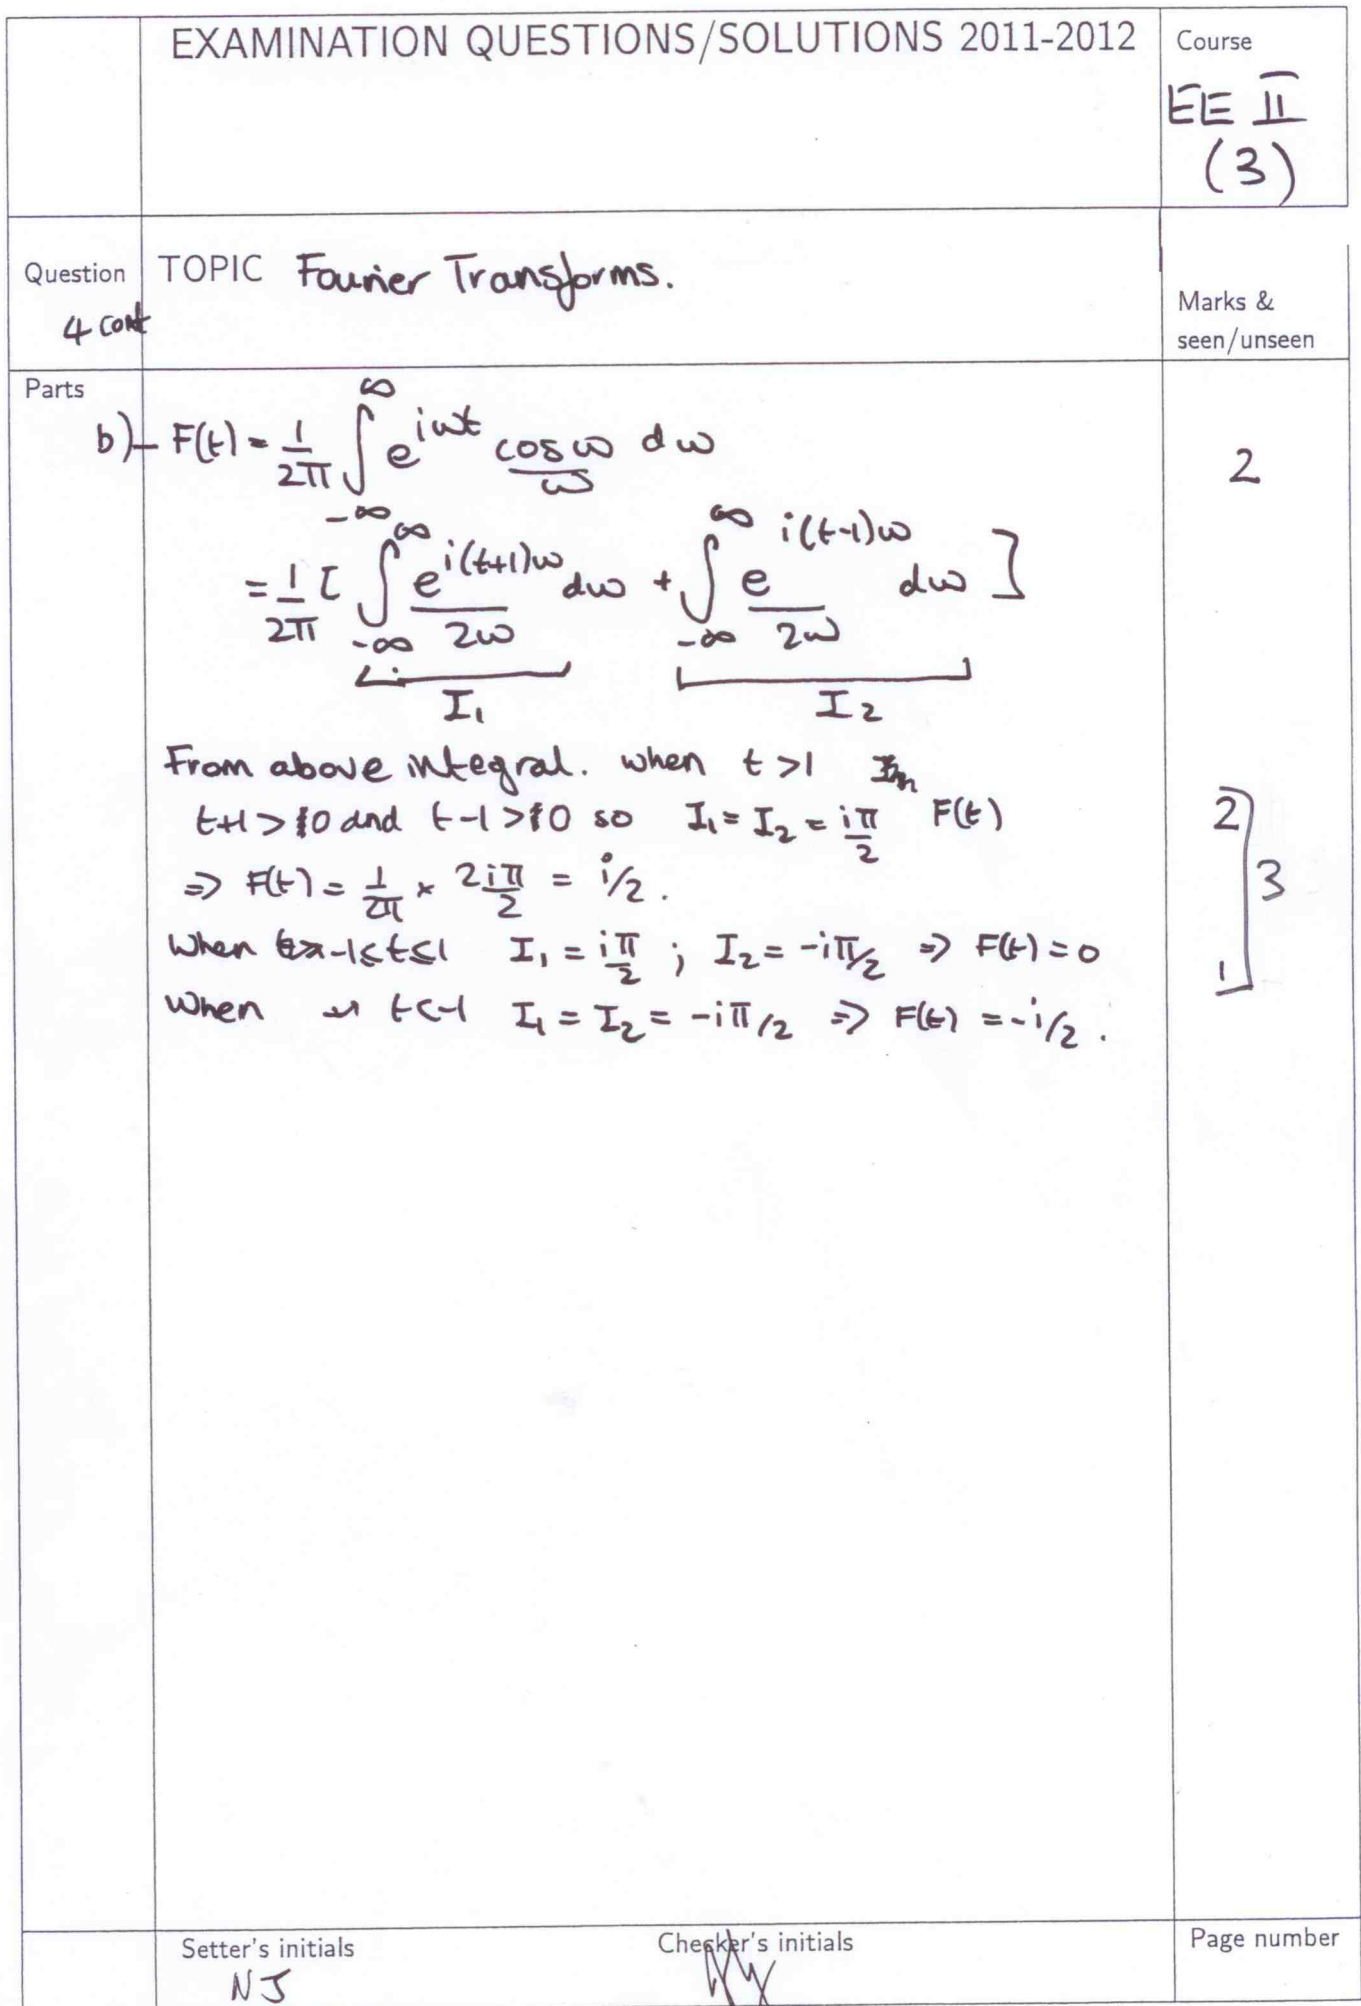 EXAMINATION QUESTIONS/SOLUTIONS 2011-2012
Course
EE II
(3)
Question
4 cont
TOPIC Fourier Transforms.
Marks &
seen/unseen
Parts
b) F(t) = 1/2π ∫_{-∞}^{∞} e^{iωt} cosω/ω dω
2
= 1/2π [ ∫_{-∞}^{∞} e^{i(t+1)ω}/2ω dω + ∫_{-∞}^{∞} e^{i(t-1)ω}/2ω dω ]
I₁ I₂
From above integral. when t >1
t+1 > 0 and t-1 > 0 so I₁ = I₂ = iπ/2 F(t)
2
⇒ F(t) = 1/2π × 2iπ/2 = i/2.
3
When -1≤t≤1 I₁ = iπ/2 ; I₂ = -iπ/2 ⇒ F(t) = 0
1
When t<-1 I₁ = I₂ = -iπ/2 ⇒ F(t) = -i/2.
Setter's initials
NJ
Checker's initials
Page number